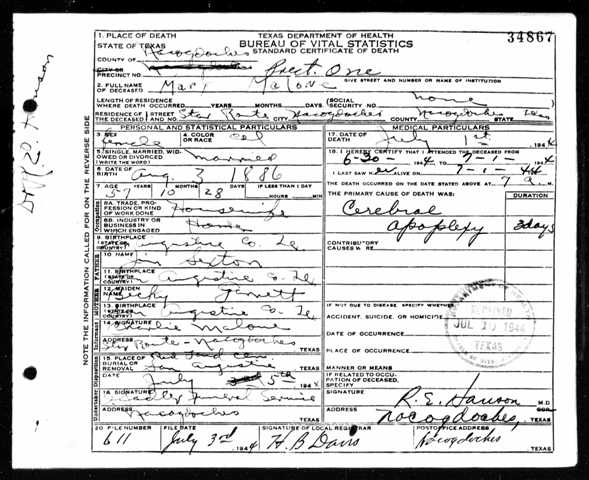 34867
TEXAS DEPARTMENT OF HEALTH
BUREAU OF VITAL STATISTICS
STANDARD CERTIFICATE OF DEATH
1. PLACE OF DEATH
STATE OF TEXAS
COUNTY OF Nacogdoches
CITY OR
PRECINCT NO. Prect. One
GIVE STREET AND NUMBER OR NAME OF INSTITUTION
2. FULL NAME OF DECEASED Mary Malone
LENGTH OF RESIDENCE WHERE DEATH OCCURRED YEARS MONTHS DAYS (SOCIAL SECURITY NO. none
RESIDENCE OF THE DECEASED STREET AND NO. Star Route Nacogdoches COUNTY Nacogdoches STATE Texas
PERSONAL AND STATISTICAL PARTICULARS
3. SEX Female 4. COLOR OR RACE Col
5. SINGLE, MARRIED, WIDOWED OR DIVORCED (WRITE THE WORD) married
6. DATE OF BIRTH Aug. 3 1886
7. AGE YEARS MONTHS DAYS IF LESS THAN 1 DAY
57 10 28 HOURS MIN.
8A. TRADE, PROFESSION OR KIND OF WORK DONE Housewife
8B. INDUSTRY OR BUSINESS IN WHICH ENGAGED Home
9. BIRTHPLACE (STATE OR COUNTRY) San Augustine Co.
10 NAME Jim Sexton
11. BIRTHPLACE (STATE OR COUNTRY) San Augustine Co.
12. MAIDEN NAME Becky
13. BIRTHPLACE (STATE OR COUNTRY) San Augustine Co.
14. SIGNATURE Charlie Malone
ADDRESS Star Route - Nacogdoches TEXAS
15. PLACE OF BURIAL OR REMOVAL Red Land Cem.
San Augustine TEXAS
DATE July 5th 1944
16. SIGNATURE Funeral Service
ADDRESS Nacogdoches TEXAS
MEDICAL PARTICULARS
17. DATE OF DEATH July 1st 1944
18. I HEREBY CERTIFY THAT I ATTENDED THE DECEASED FROM
6-30- 1944 TO 7-1- 1944
I LAST SAW her ALIVE ON 7-1- 1944
THE DEATH OCCURRED ON THE DATE STATED ABOVE AT 7 a. M.
THE PRIMARY CAUSE OF DEATH WAS: DURATION
Cerebral
apoplexy 3 days
CONTRIBUTORY CAUSES WERE
IF NOT DUE TO DISEASE, SPECIFY WHETHER
ACCIDENT, SUICIDE, OR HOMICIDE
DATE OF OCCURRENCE
PLACE OF OCCURRENCE
MANNER OR MEANS
IF RELATED TO OCCUPATION OF DECEASED, SPECIFY
SIGNATURE R. E. Hanson M.D.
ADDRESS Nacogdoches, TEXAS
20 FILE NUMBER FILE DATE SIGNATURE OF LOCAL REGISTRAR POSTOFFICE ADDRESS
611 July 3rd 1944 H. B. Davis Nacogdoches TEXAS
JUL 1944
TEXAS
NOTE THE INFORMATION CALLED FOR ON THE REVERSE SIDE